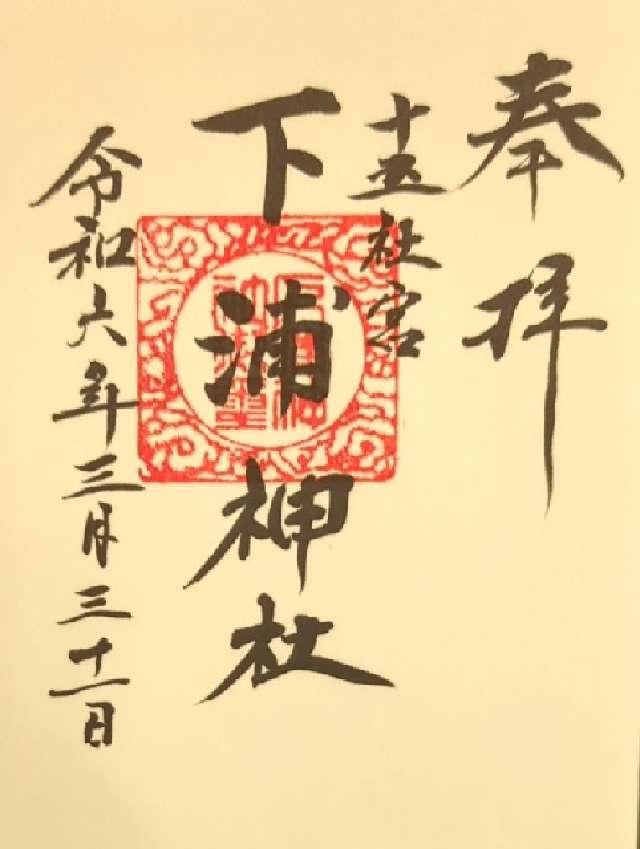 奉拝
十五社宮
下浦神社
令和六年三月三十一日